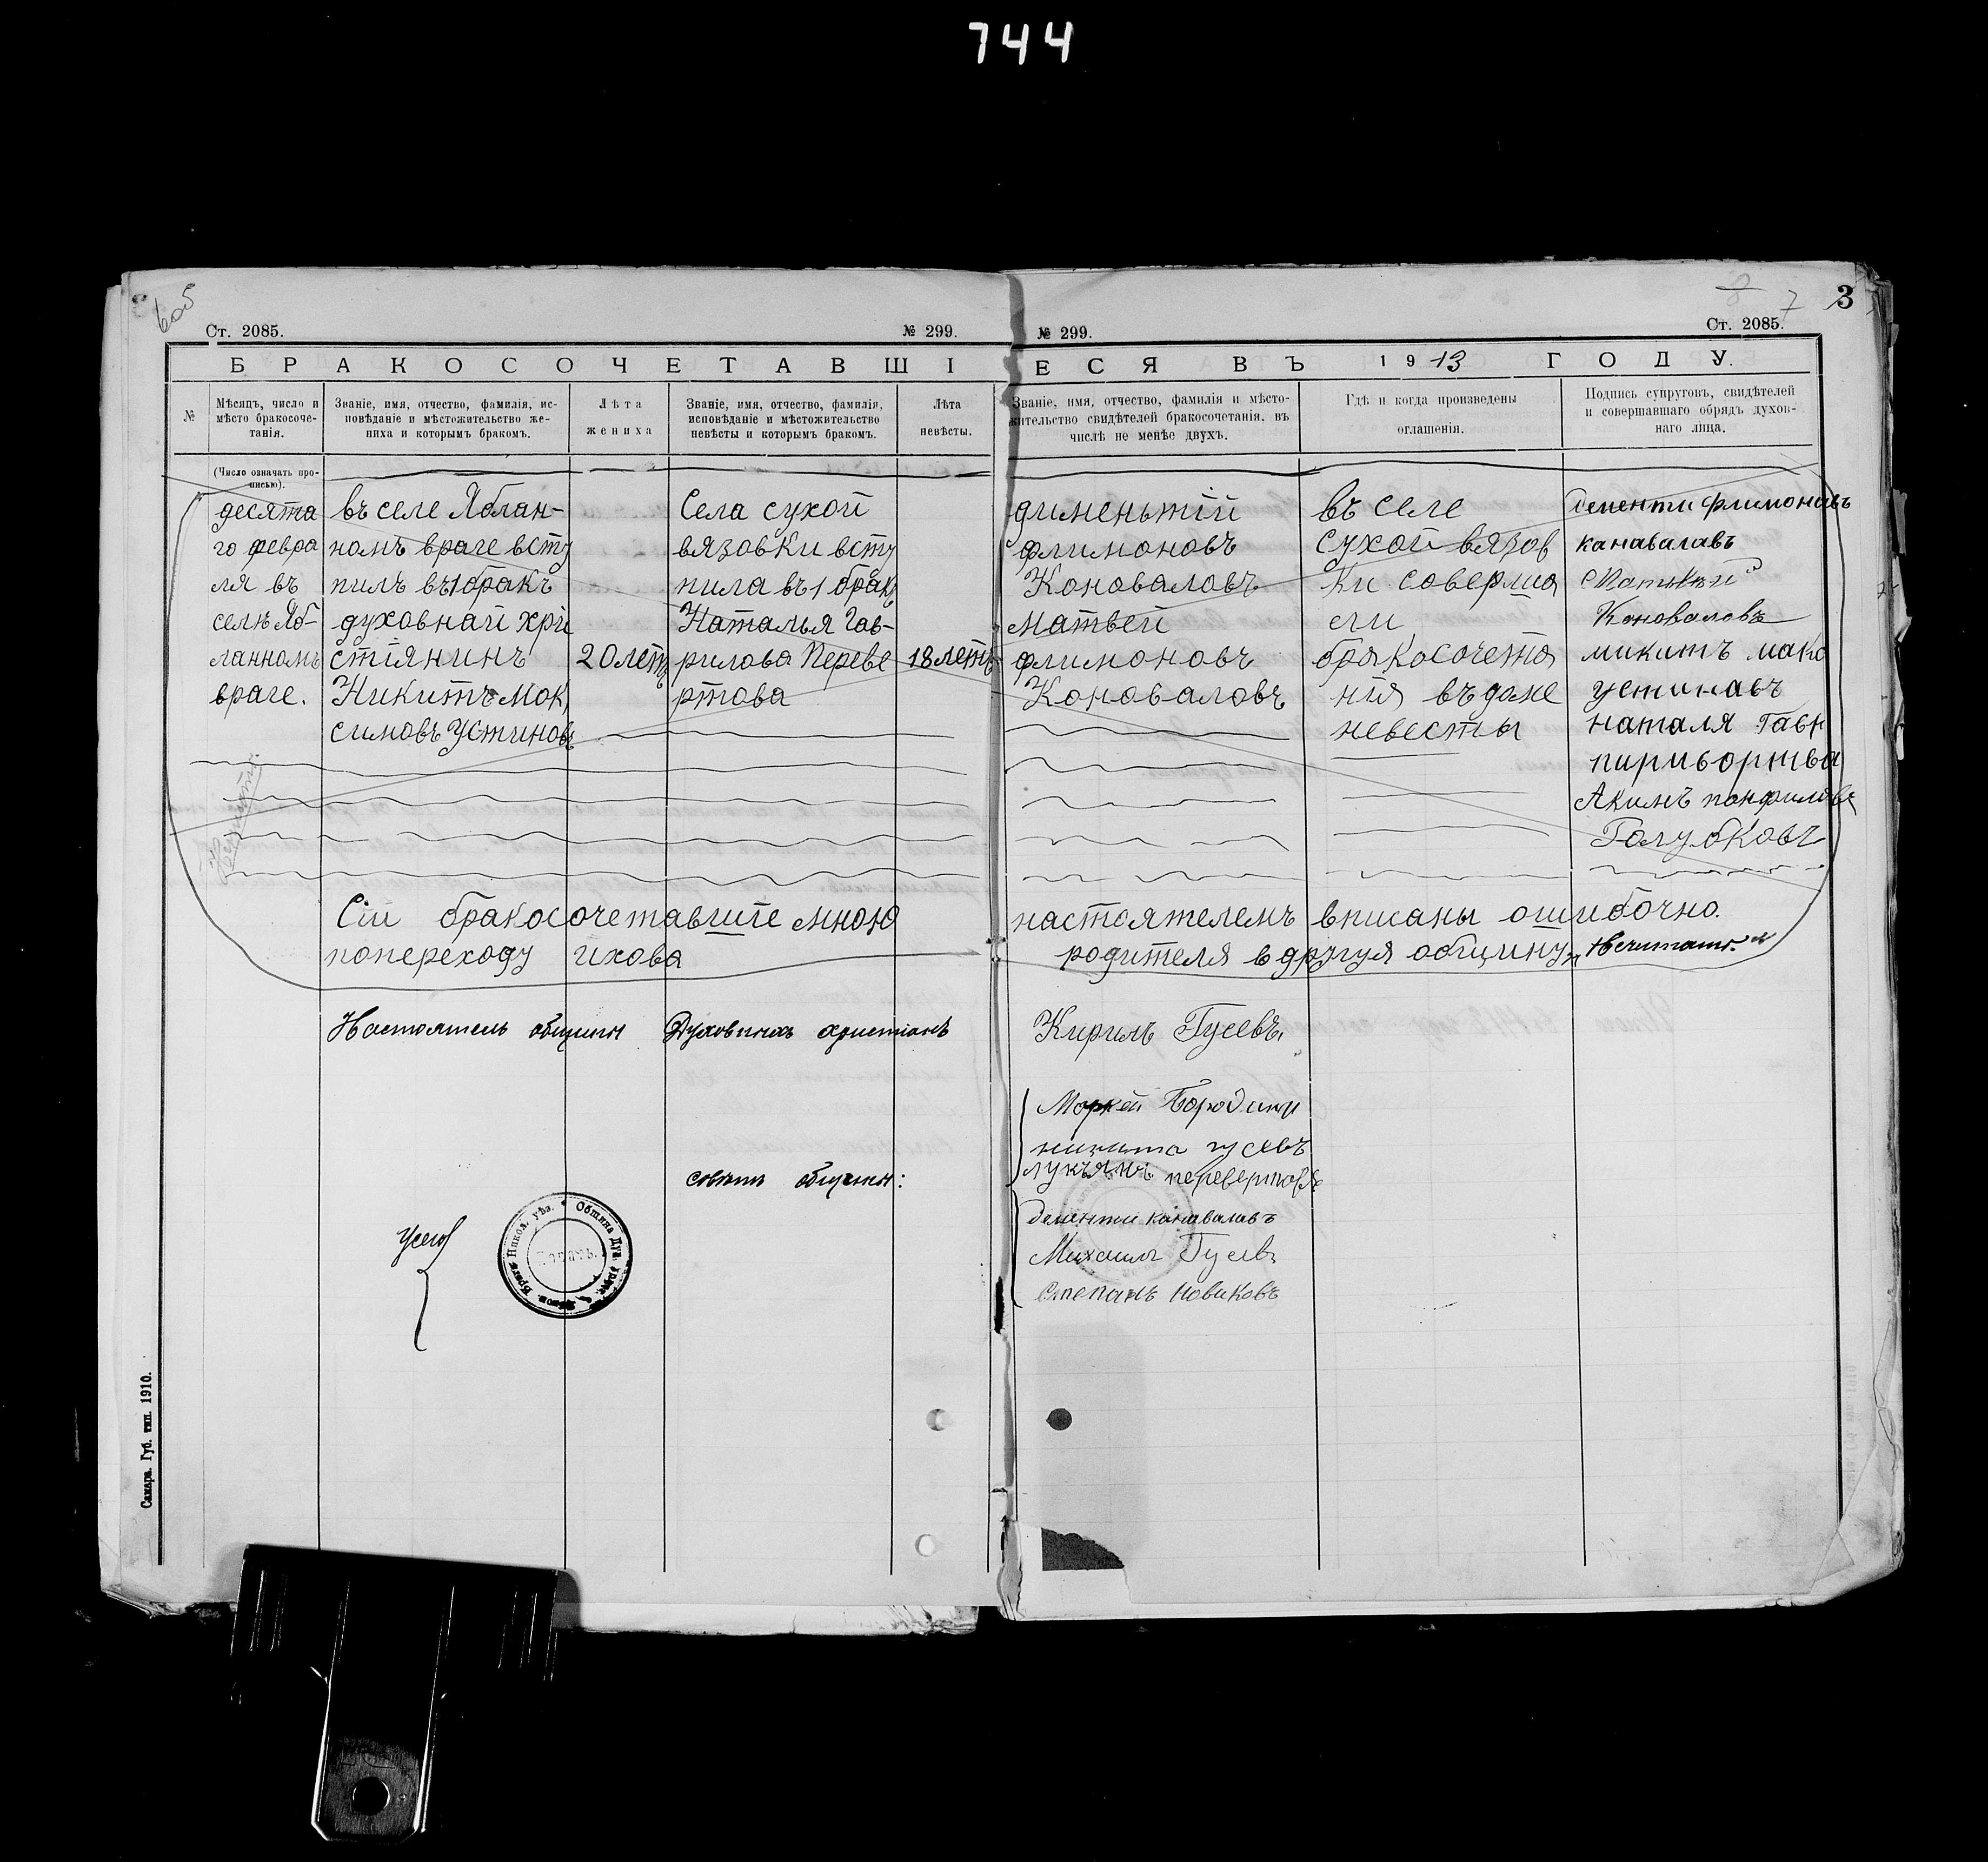 744
605
Ст. 2085.
№ 299.
№ 299.
Ст. 2085.
7
3
БРАКОСОЧЕТАВШІ
ЕСЯ ВЪ 1913 ГОДУ.
№
Мѣсяцъ, число и
мѣсто бракосоче-
танія.
Званіе, имя, отчество, фамилія, ис-
повѣданіе и мѣстожительство же-
ниха и которымъ бракомъ.
Лѣта
жениха
Званіе, имя, отчество, фамилія,
исповѣданіе и мѣстожительство
невѣсты и которымъ бракомъ.
Лѣта
невѣсты.
Званіе, имя, отчество, фамилія и мѣсто-
жительство свидѣтелей бракосочетанія, въ
числѣ не менѣе двухъ.
Гдѣ и когда произведены
оглашенія.
Подпись супруговъ, свидѣтелей
и совершавшаго обрядъ духов-
наго лица.
(Число означать про-
писью).
десята
го февра
ля въ
селѣ Яб-
ланномъ
враге.
въ селе Яблан-
номъ враге всту
пилъ въ 1 бракъ
духовнай хри
стіянинъ
Никитъ Мок
симовъ Устиновъ
20 летъ
Села сухой
вязовки всту
пила въ 1 бракъ
Наталья Гав-
рилова Переве
ртова
18 летъ
дименьтій
флимоновъ
Коноваловъ
Матвей
флимоновъ
Коноваловъ
въ селе
сухой вязов
ки совершa
ли
бракосочета
нія въ доме
невесты
дементи флимонавъ
канавалавъ
Коноваловъ
микитъ мако
устинавъ
наталя Гавр
пирвортва
Акимъ понфиловъ
Голубковъ
Сіи бракосочетавшіе мною настоятелемъ вписаны ошибочно.
попереходу ихова родителя в другуя общину, Нечитать.
Настоятель общины Духовныхъ христіанъ Кирилъ Гусевъ.
Моркей Бородинъ
никита гусевъ
лукъянъ перевертовъ
совѣтъ общины:
дементи канавалавъ
Михаилъ Гусевъ
Степанъ Новиковъ
Самара. Губ. тип. 1910.